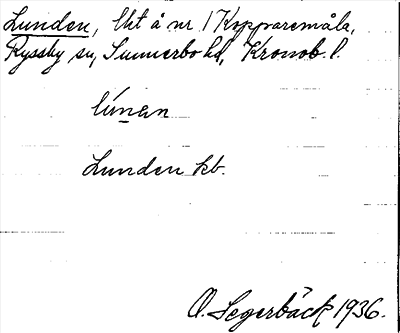 Lunden, lht å nr 1 Kopparemåla,
Ryssby sn, Sunnerbo hd, Kronob. l.
lúnen
Lunden kb.
O. Segerbäck 1936.